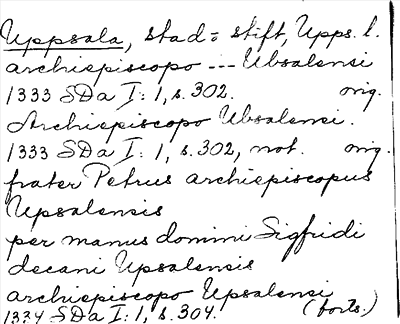 Uppsala, stad = stift, Upps. l.
archiepiscopo --- Ubsalensi
1333 SDa I: 1, s. 302. orig.
Archiepiscopo Ubsalensi.
1333 SDa I: 1, s. 302, not. orig.
frater Petrus archiepiscopus
Upsalensis
per manus domini Sigfridi
decani Upsalensis
archiepiscopo Upsalensi
1334 SDa I: 1, s. 304. (forts.)